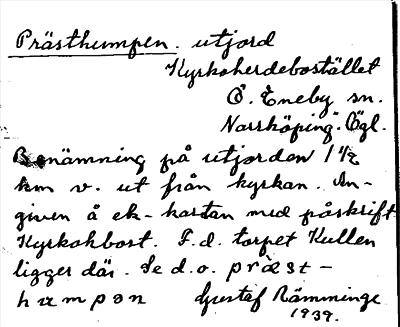 Prästhumpen. utjord
Kyrkoherdebostället
Ö. Eneby sn.
Norrköping. Ögl.
Benämning på utjorden 1 1/2
km v. ut från kyrkan. An-
given å ek-kartan med påskrift
Kyrkohbost. F.d. torpet Kullen
ligger där. Se d.o. præst-
hampən Gustaf Rämminge
1939.